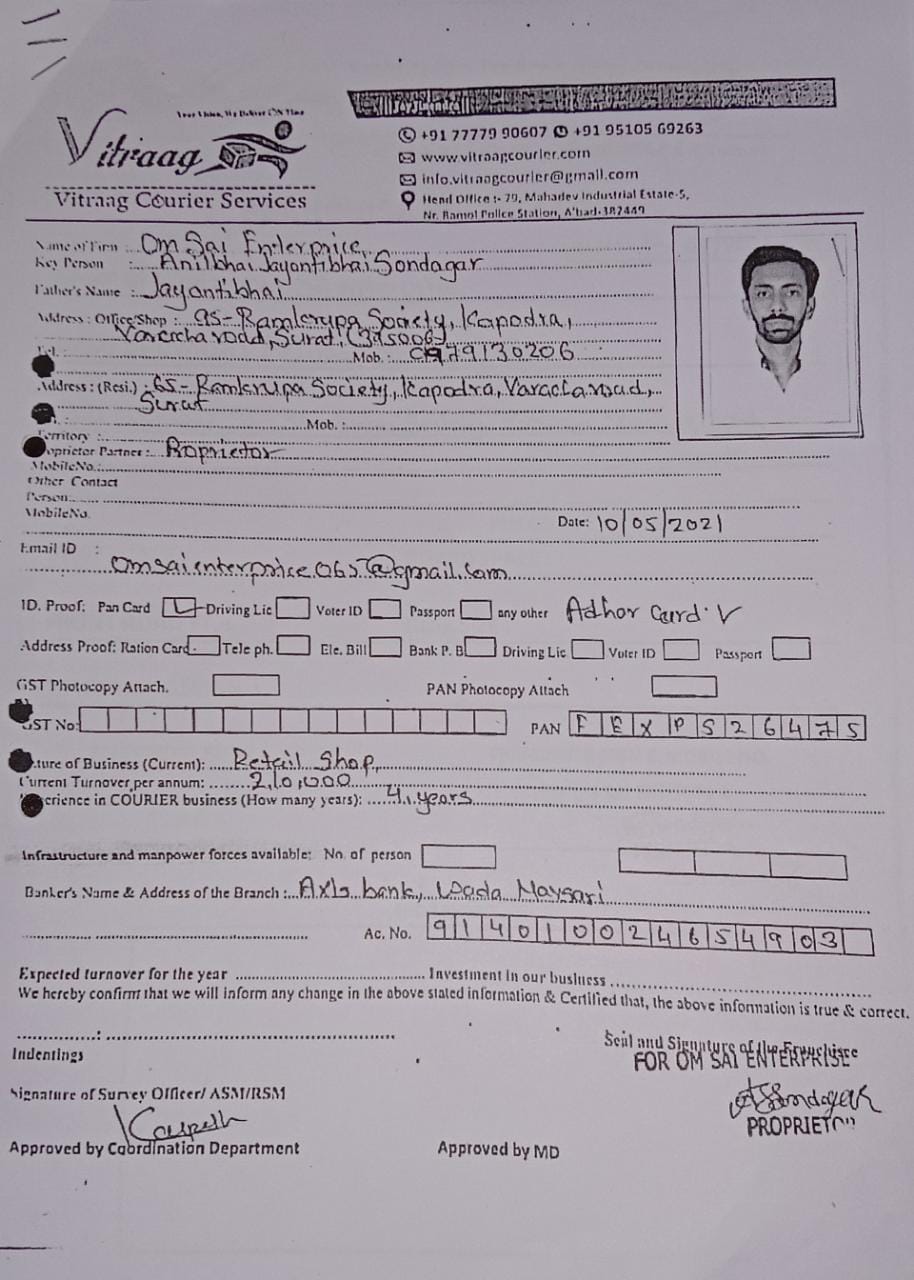 Vitraag
Vitraag Courier Services
+91 77779 90607 +91 95105 69263
www.vitraagcourier.com
info.vitraagcourier@gmail.com
Head Office :- 79, Mahadev Industrial Estate-5,
Nr. Ramol Police Station, A'bad-382449
Name of Firn : Om Sai Enterprice
Key Person : Anilbhai Jayantibhai Sondagar
Father's Name : Jayantibhai
Address : Office/Shop : Ramkrupa Society, Kapodra,
Varacha road, Surat,
Tel. Mob. :
Address : (Resi.) : 65- Ramkrupa Society, Kapodra,
Surat
Mob. :
Territory :
oprietor Partner :
MobileNo.:
Other Contact
Person:
MobileNo.
Date: 10/05/2021
Email ID :
omsaienterprice.065@gmail.com
ID. Proof: Pan Card Driving Lic Voter ID Passport any other Adhor Card. V
Address Proof: Ration Card. Tele ph. Ele. Bill Bank P. B Driving Lic Voter ID Passport
GST Photocopy Attach. PAN Photocopy Attach
GST No: PAN FEXPS2647S
ture of Business (Current): Retail Shop,
Current Turnover per annum: 2,10,000
erience in COURIER business (How many years): 4. years
Infrastructure and manpower forces available: No. of person
Banker's Name & Address of the Branch : Axis bank,
Ac. No. 914010024654903
Expected turnover for the year Investment in our business
We hereby confirm that we will inform any change in the above stated information & Certified that, the above information is true & correct.
Indentings
Seal and Signature of the Franchise
FOR OM SAI ENTERPRISE
Signature of Survey Officer/ ASM/RSM
PROPRIETOR
Approved by Coordination Department Approved by MD